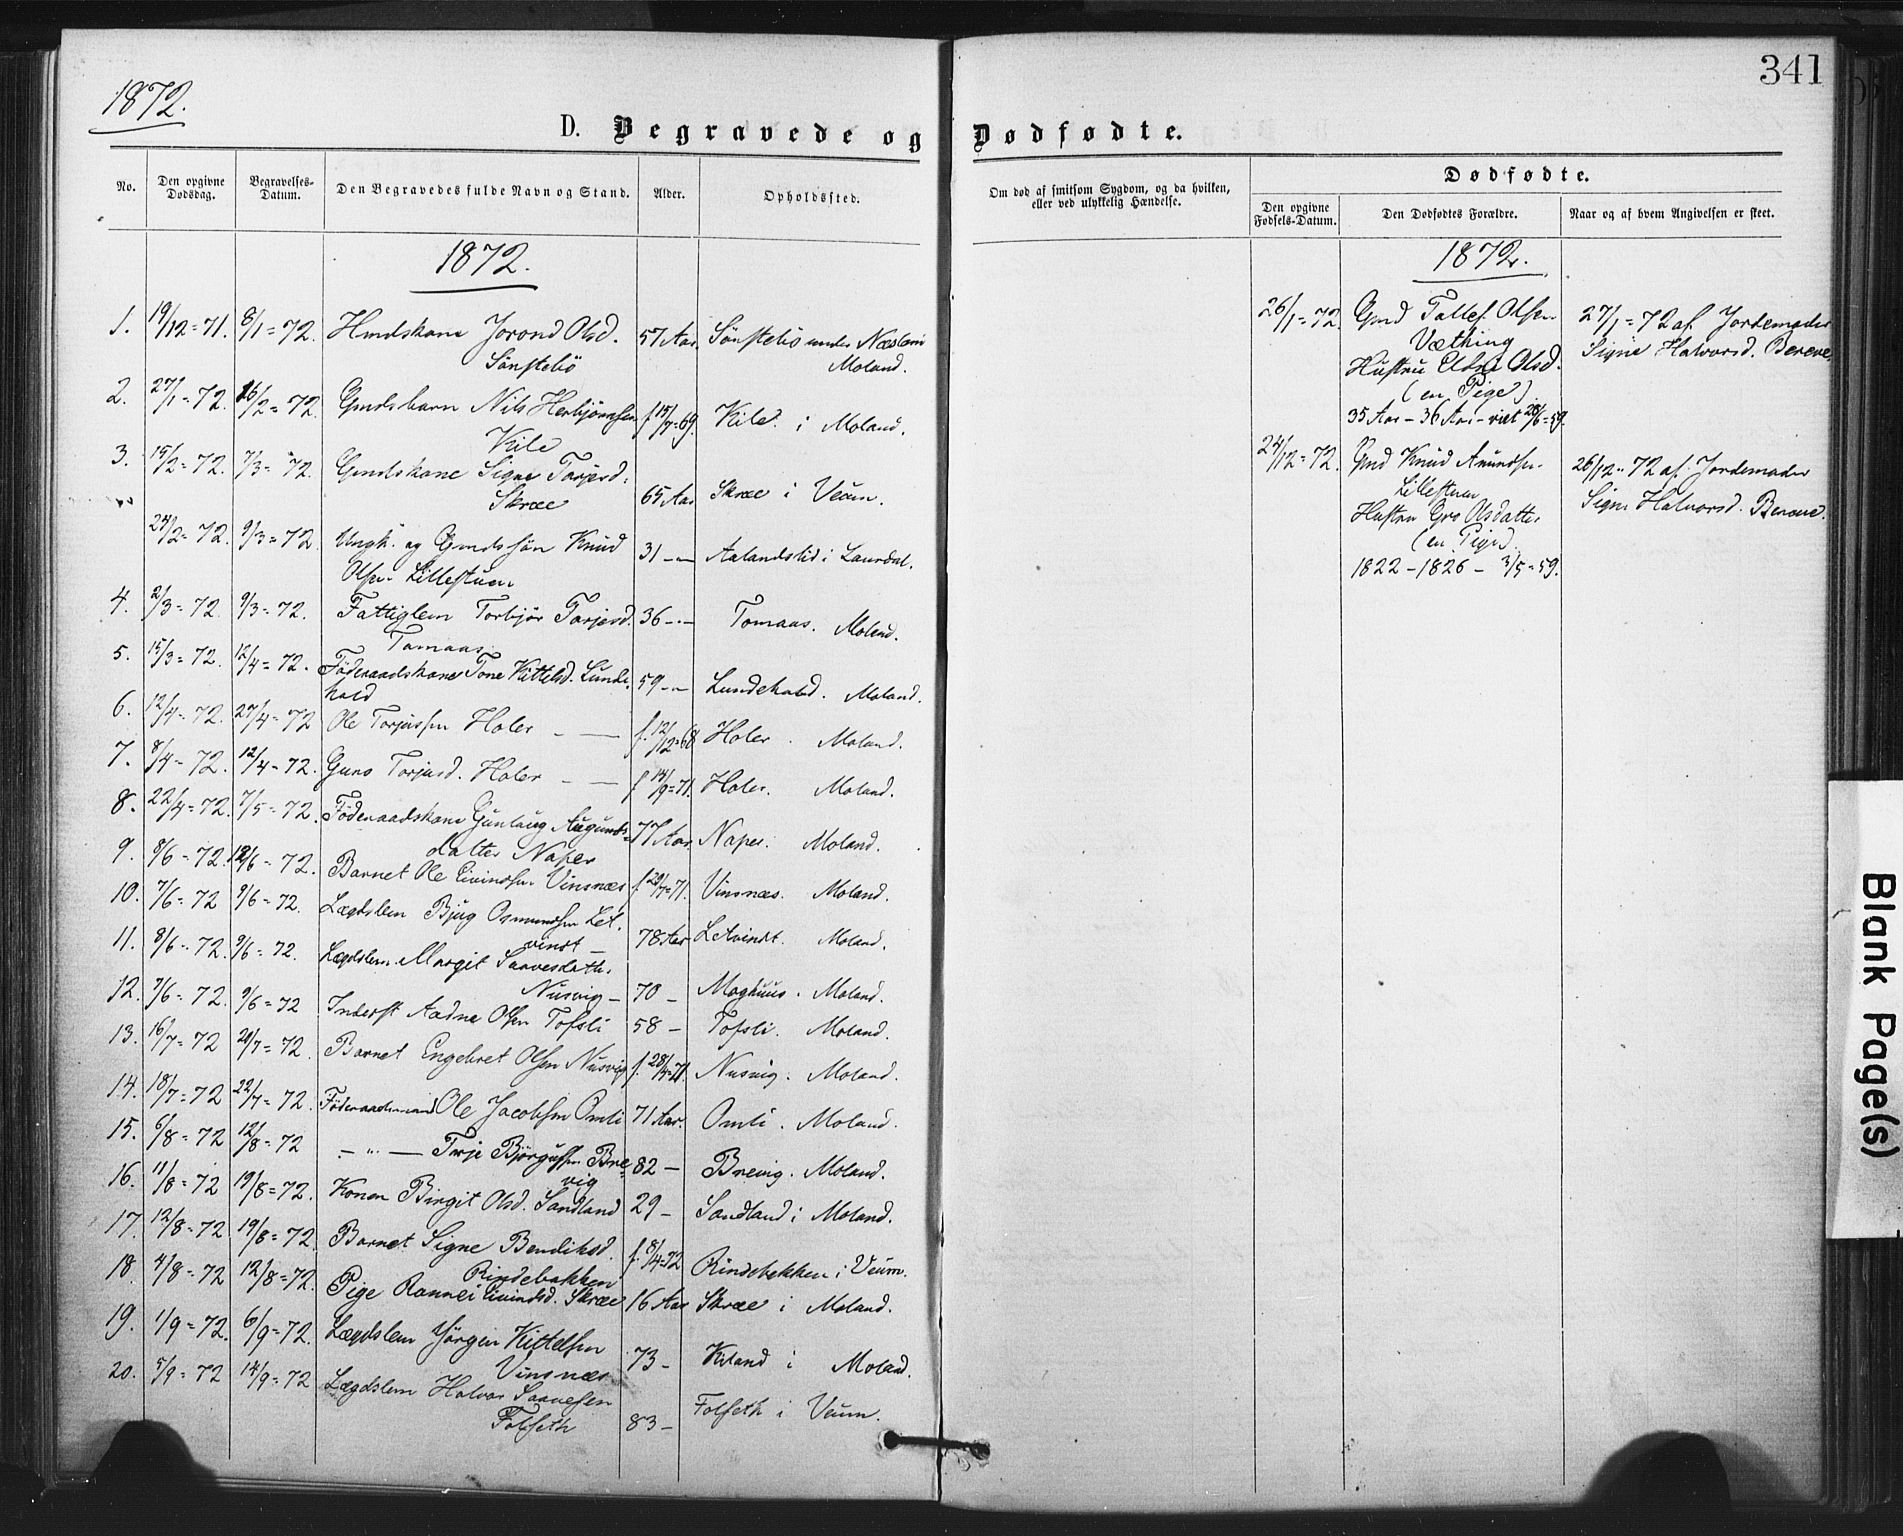 1872.
341
D. Begravede og Dødfødte.
No. Den opgivne Dødsdag. Begravelses-Datum. Den Begravedes fulde Navn og Stand. Alder. Opholdssted.
Om død af smitsom Sygdom, og da hvilken, eller ved ulykkelig Hændelse.
Dødfødte.
Den opgivne Fødsels-Datum. Den Dødfødtes Forældre. Naar og af hvem Angivelsen er skeet.
1872.
1. 19/12=71. 8/1=72. Hmdskone Jorond Olsd. 57 Aar. Sönstebö under Næslein
Sönstebö Moland.
2. 27/1=72. 16/2=72. Gmdsbarn Nils Herbjörnsen f 15/7=69. Kile i Moland.
Kile
3. 15/2=72. 7/3=72. Gmdskone Signe Torjusd. 65 Aar Skræe i Veum.
Skræe
24/2=72. 9/3=72 Ungk. og Gmdssön Knud 31 -"- Aalandslid i Laurdal.
Olsen Lillestuen
4. 2/3=72. 9/3=72. Fattiglem Torbjör Torjusd. 36 -"- Tomaas. Moland.
Tomaas
5. 15/3=72. 12/4=72. Föderaadskone Tone Kittelsd. Lunde- 59 -"- Lundehold. Moland.
hold
6. 12/4=72. 27/4=72 Ole Torjussen Holer f. 12/12=68 Holer. Moland.
7. 8/4=72. 12/4=72. Guro Torjusd. Holer f 14/9=71. Holer. Moland.
8. 22/4=72. 7/5=72. Föderaadskone Gunlaug Augunds- 77 Aar Naper. Moland.
datter Naper
9. 8/6=72. 12/6=72. Barnet Ole Eivindsen Vinsnæs f 29/7=71. Vinsnæs. Moland.
10. 7/6=72 9/6=72. Lægdslem Bjug Osmundsen Let- 78 Aar Letvindt. Moland.
vindt
11. 8/6=72. 9/6=72. Lægdslem Margit Saavesdatter 70 - Moghuus. Moland.
Nusvig
12. 7/6=72. 9/6=72 Inderst Aadne Olsen Tofsli 58 - Tofsli. Moland.
13. 16/7=72 20/7=72. Barnet Engebret Olsen Nusvig f. 28/4=71. Nusvig. Moland.
14. 18/7=72 22/7=72. Föderaadsmand Ole Jacobsen Omli 71 Aar. Omli. Moland.
15. 6/8=72 12/8=72 -"- Terje Björgufsen Bre- 82 - Brevig. Moland.
vig
16. 11/8=72 19/8=72. Konen Birgit Olsd. Sandland 29 - Sandland i Moland.
17. 12/8=72 19/8=72. Barnet Signe Bendiksd. f. 8/4=72 Rindebekken i Veum.
Rindebakken
18. 4/8=72 12/8=72. Pige Rannei Eivindsd. Skræe 16 Aar Skræe i Moland.
19. 1/9=72. 6/9=72. Lægdslem Jörgen Kittelsen 73 - Kiland i Moland.
Vinsnæs
20. 5/9=72 14/9=72 Lægdslem Halvor Saavesen 83 - Folseth i Veum.
Folseth
1872.
26/1=72. Gmd Tallef Olsen 27/1=72 af Jordemoder
Væthing Signe Halvorsd. Bereve
Hustru Olsd.
(en Pige)
35 Aar - 36 Aar - viet 28/6=59.
24/12=72. Gmd Knud Amundsen 26/12=72 af Jordemoder
Lillestuen Signe Halvorsd. Bereve.
Hustru Gro Olsdatter
(en Pige)
1822 - 1826 - 3/5=59.
Blank Page(s)